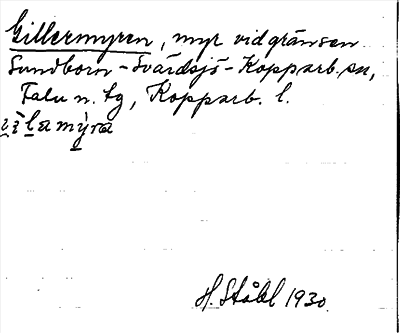 Gillermyren, myr vid gränsen
Sundborn-Svärdsjö-Kopparb. sn,
Falu n. tg, Kopparb. l.
H. Ståhl 1930.